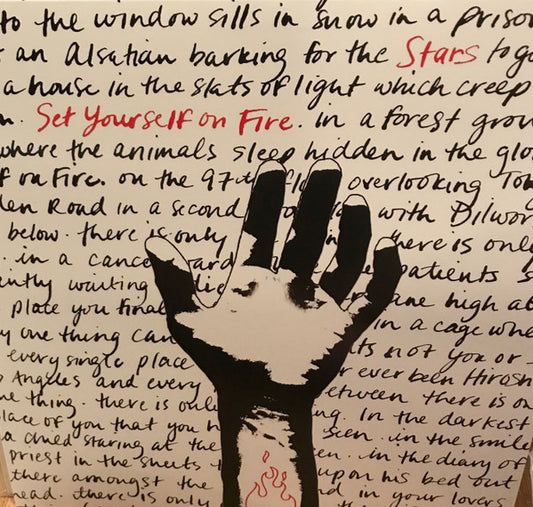 to the window sills in snow in a prison
an Alsatian barking for the Stars to go
a house in the slats of light which creep
Set Yourself on Fire. in a forest grow
where the animals sleep hidden in the glo
on Fire. on the 97th overlooking
Road in a second with Dilwor
below. there is only here is only
in a cance ward patients s
ently waiting die ane high at
place you final in a cage whe
one thing can ts not you or
every single place r ever been Hirosh
Angeles and every etween there is on
ne thing. there is only ng. In the darkest
lace of you that you h seen. in the smile
a dried staring at the en. in the diary of
priest in the sheets upon his bed out
there amongst the nd in your lovers
head. there is only